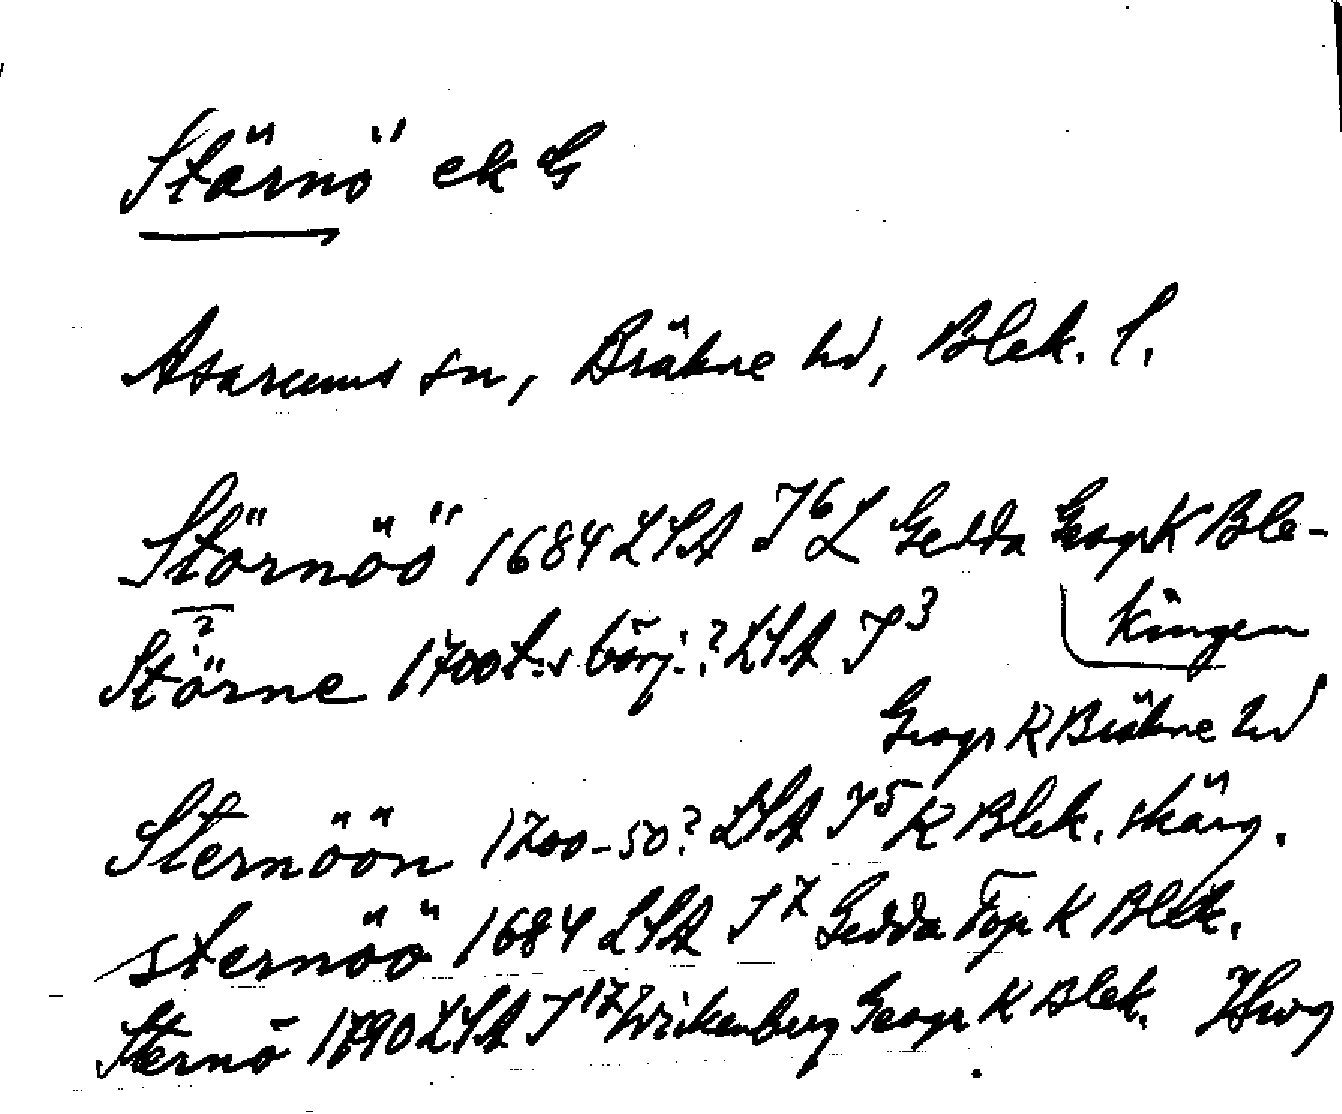 Stärnö ek G
Asarums sn, Bräkne hd, Blek. l.
Störnöö 1684 LSA I 6 L Gedda Geogr K Ble-
kingen
Störne 1700 t:s börj.? LSA I 3
Geogr K Bräkne hd
Sternöön 1700-50? LSA I 5 K Blek. skärg.
sternöö 1684 LSA I 7 Gedda Top K Blek.
Sternö 1790 LSA I 17 Wickenberg Geogr K Blek.